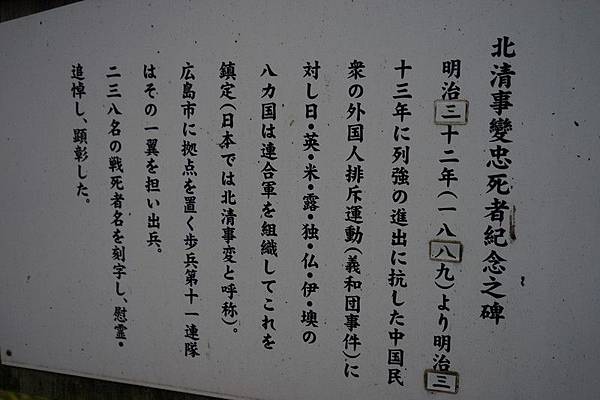 北清事變忠死者紀念之碑
明治三十二年(一八八九)より明治三
十三年に列強の進出に抗した中国民
衆の外国人排斥運動(義和団事件)に
対し日・英・米・露・独・仏・伊・墺の
八カ国は連合軍を組織してこれを
鎮定(日本では北清事変と呼称)。
広島市に拠点を置く歩兵第十一連隊
はその一翼を担い出兵。
二三八名の戦死者名を刻字し、慰霊・
追悼し、顕彰した。